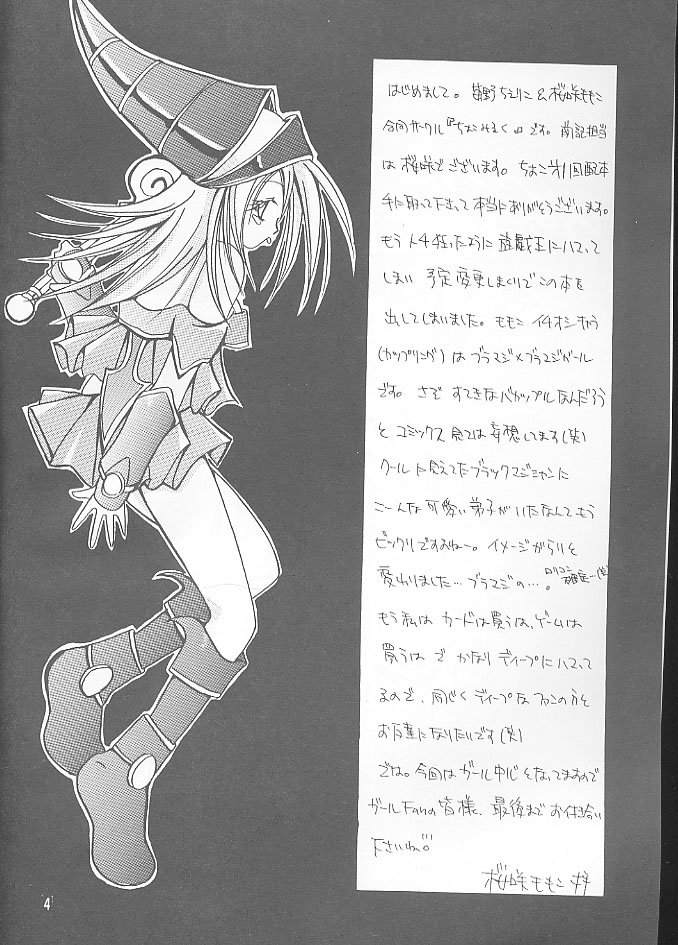 はじめまして。姫野ちえりこ&桜咲ももこ
合同サークル『ちょこみるく』です。前記担当
は桜咲でございます。ちょこオ1回配本
手に取って下さって本当にありがとうございます。
もう 人4狂ったように 遊戯王にハマって
しまい 予定変更しまくりでこの本を
出してしまいました。ももこ イチオシキャラ
(カップリング)はブラマジ×ブラマジガール
です。さぞ すてきなバカップルなんだろう
と コミックス 見ては妄想してます(笑)
クールに見えてたブラックマジシャンに
こーんな可愛い弟子がいたなんてもう
ビックリですよねー。イメージがらりと
変わりました…ブラマジの…。ロリコン確定…(笑)
もう私は カードは買うは、ゲームは
買うは で かなりディープにハマって
るので、同じくディープなファンの方と
お友達になりたいです(笑)
では。今回はガール中心となってますので
ガールFanの皆様、最後までお付き合い
下さいね。
桜咲ももこ 拝
4